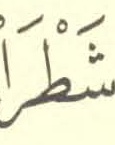 شَطْرَا